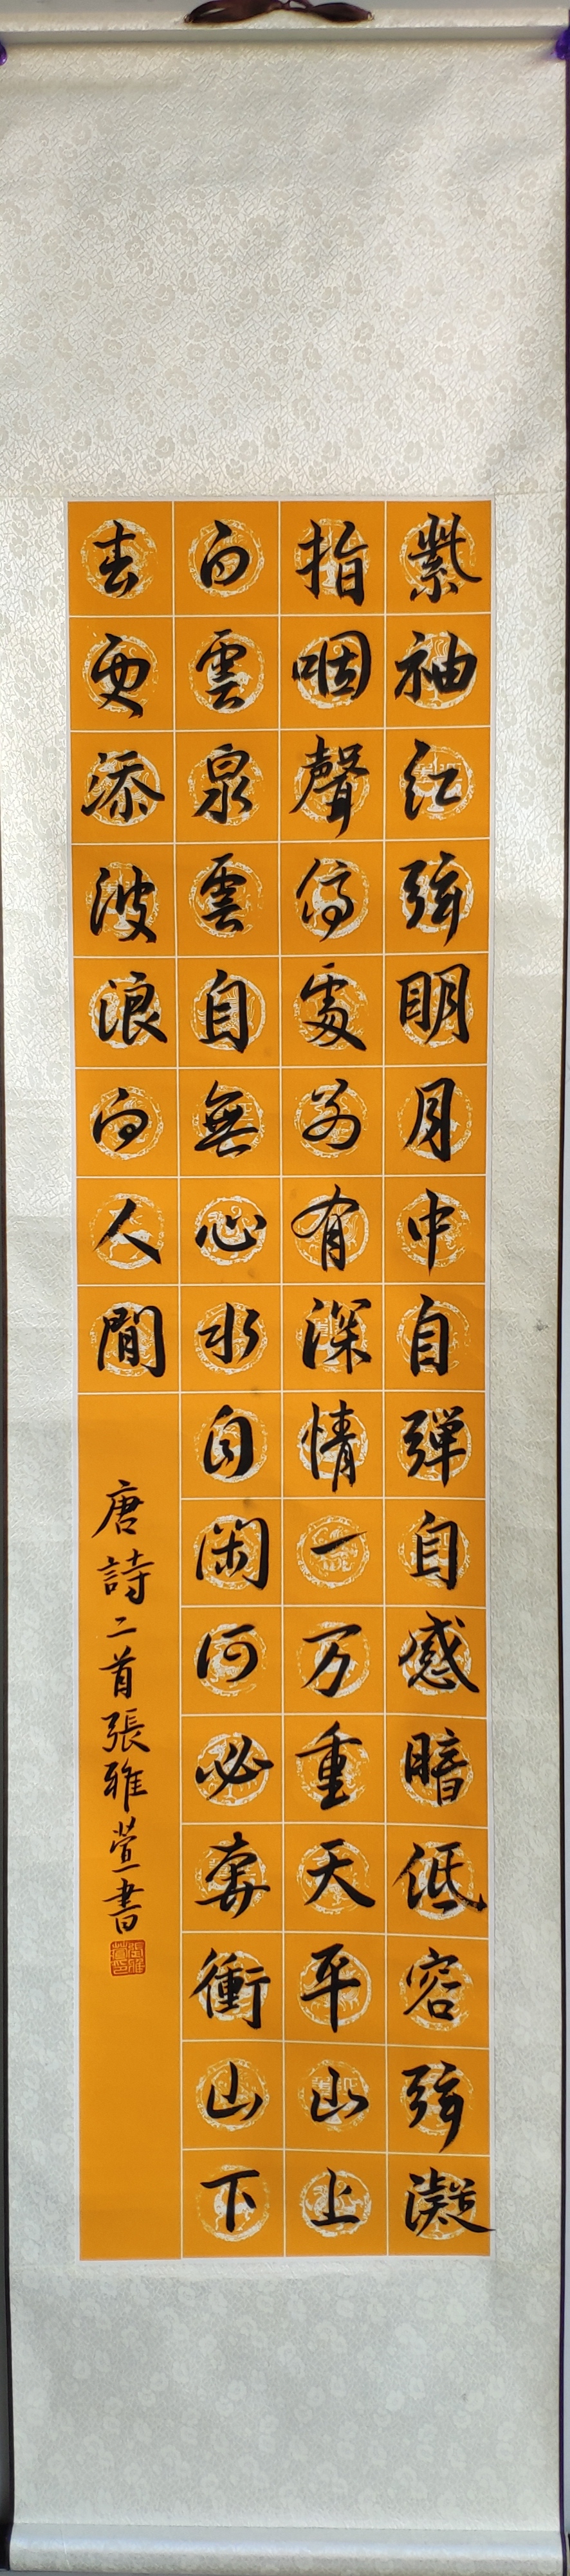 紫袖红弦明月中自弹自感暗低容弦凝
指咽聲停處别有深情一万重天平山上
白雲泉雲自無心水自閑何必奔衝山下
去更添波浪向人間
唐詩二首張雅萱書